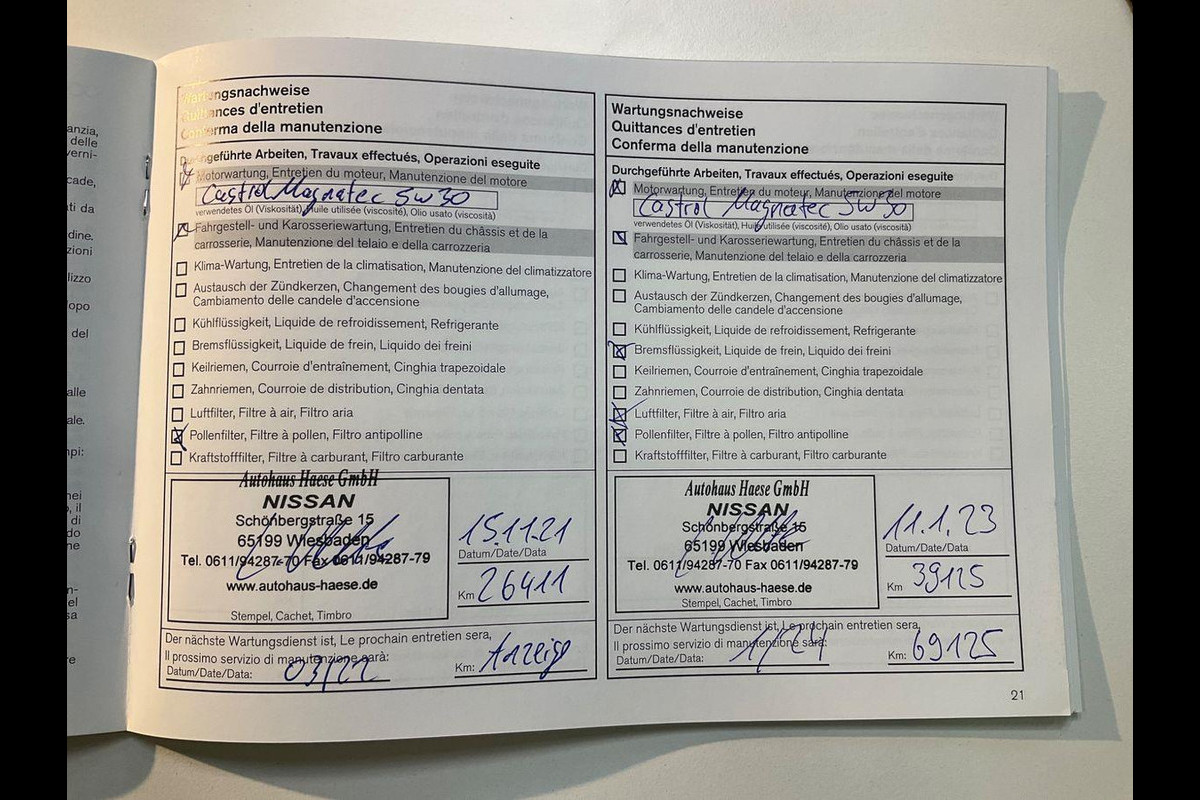 anzia,
delle
verni-
cade,
ti da
dine.
zioni
lizzo
opo
del
alle
ale.
npi:
nei
o, il
di
do
ne
n-
el
sa
re
Wartungsnachweise
Quittances d'entretien
Conferma della manutenzione
Durchgeführte Arbeiten, Travaux effectués, Operazioni eseguite
Motorwartung, Entretien du moteur, Manutenzione del motore
Castrol Magnatec 5W30
verwendetes Öl (Viskosität), Huile utilisée (viscosité), Olio usato (viscosità)
Fahrgestell- und Karosseriewartung, Entretien du châssis et de la
carrosserie, Manutenzione del telaio e della carrozzeria
Klima-Wartung, Entretien de la climatisation, Manutenzione del climatizzatore
Austausch der Zündkerzen, Changement des bougies d'allumage,
Cambiamento delle candele d'accensione
Kühlflüssigkeit, Liquide de refroidissement, Refrigerante
Bremsflüssigkeit, Liquide de frein, Liquido dei freini
Keilriemen, Courroie d'entraînement, Cinghia trapezoidale
Zahnriemen, Courroie de distribution, Cinghia dentata
Luftfilter, Filtre à air, Filtro aria
Pollenfilter, Filtre à pollen, Filtro antipolline
Kraftstofffilter, Filtre à carburant, Filtro carburante
Autohaus Haese GmbH
NISSAN
Schönbergstraße 15
65199 Wiesbaden
Tel. 0611/94287-70 Fax 0611/94287-79
www.autohaus-haese.de
Stempel, Cachet, Timbro
15.11.21
Datum/Date/Data
Km 26411
Der nächste Wartungsdienst ist, Le prochain entretien sera,
Il prossimo servizio di manutenzione sarà:
Datum/Date/Data: 03/22
Km: Anzeige
Wartungsnachweise
Quittances d'entretien
Conferma della manutenzione
Durchgeführte Arbeiten, Travaux effectués, Operazioni eseguite
Motorwartung, Entretien du moteur, Manutenzione del motore
Castrol Magnatec 5W30
verwendetes Öl (Viskosität), Huile utilisée (viscosité), Olio usato (viscosità)
Fahrgestell- und Karosseriewartung, Entretien du châssis et de la
carrosserie, Manutenzione del telaio e della carrozzeria
Klima-Wartung, Entretien de la climatisation, Manutenzione del climatizzatore
Austausch der Zündkerzen, Changement des bougies d'allumage,
Cambiamento delle candele d'accensione
Kühlflüssigkeit, Liquide de refroidissement, Refrigerante
Bremsflüssigkeit, Liquide de frein, Liquido dei freini
Keilriemen, Courroie d'entraînement, Cinghia trapezoidale
Zahnriemen, Courroie de distribution, Cinghia dentata
Luftfilter, Filtre à air, Filtro aria
Pollenfilter, Filtre à pollen, Filtro antipolline
Kraftstofffilter, Filtre à carburant, Filtro carburante
Autohaus Haese GmbH
NISSAN
Schönbergstraße 15
65199 Wiesbaden
Tel. 0611/94287-70 Fax 0611/94287-79
www.autohaus-haese.de
Stempel, Cachet, Timbro
11.1.23
Datum/Date/Data
Km 39125
Der nächste Wartungsdienst ist, Le prochain entretien sera,
Il prossimo servizio di manutenzione sarà:
Datum/Date/Data: 1/24
Km: 69125
21